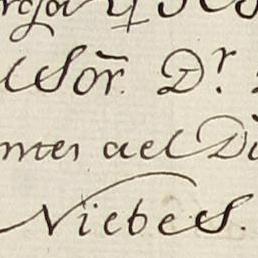 l Sõr. D.r
ntes del D
Niebes.